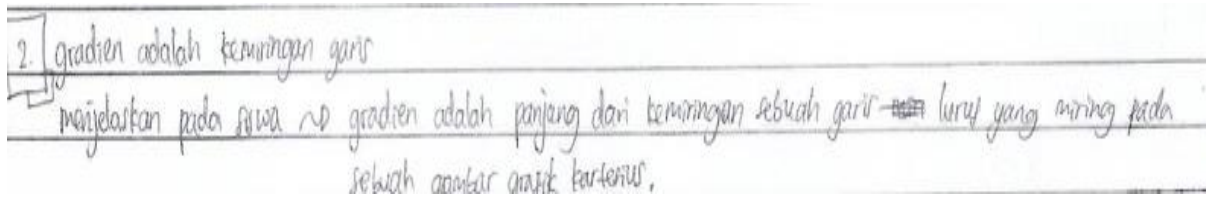 2. gradien adalah kemiringan garis
menjelaskan pada siswa ~> gradien adalah panjang dari kemiringan sebuah garis lurus yang miring pada
sebuah gambar grafik kartesius.